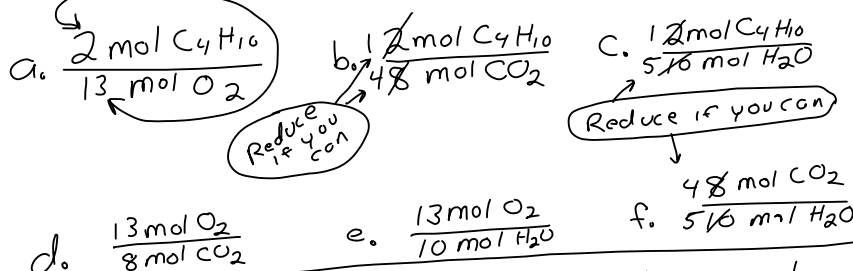 a. 2 mol C4H10
13 mol O2
b. 1 2 mol C4H10
4 8 mol CO2
c. 1 2 mol C4H10
5 10 mol H2O
Reduce
if you
can
Reduce if you can
d. 13 mol O2
8 mol CO2
e. 13 mol O2
10 mol H2O
f. 4 8 mol CO2
5 10 mol H2O